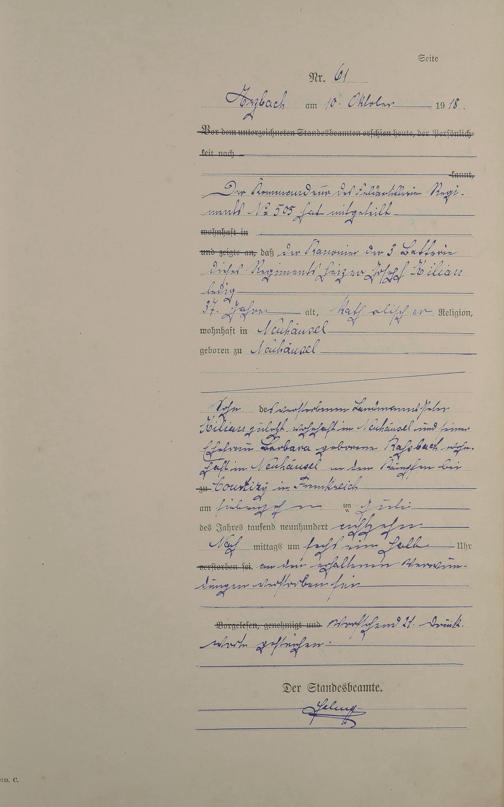 Seite
Nr. 61
Arzbach am 10. Oktober 1918.
Vor dem unterzeichneten Standesbeamten erschien heute, der Persönlich-
keit nach
kannt,
Der Kommandeur des Feldartillerie Regi-
ments No 505 hat mitgeteilt
wohnhaft in
und zeigte an, daß der Kanonier der 3 Batterie
dieses Regiments Josef Kilian
ledig
37 Jahre alt, katholischer Religion,
wohnhaft in Neuhäusel
geboren zu Neuhäusel
Sohn des verstorbenen Landmannes Peter
Kilian zuletzt wohnhaft in Neuhäusel und seiner
Ehefrau Barbara geborene wohn-
haft in Neuhäusel in den Kämpfen bei
zu in Frankreich
am siebenzehn ten Juli
des Jahres tausend neunhundert achtzehn
Nach mittags um sechs ein halb Uhr
verstorben sei, an den erhaltenen Verwun-
dungen verstorben sei
Vorgelesen, genehmigt und Vorstehend 21 Druck-
worte gestrichen.
Der Standesbeamte.
C.